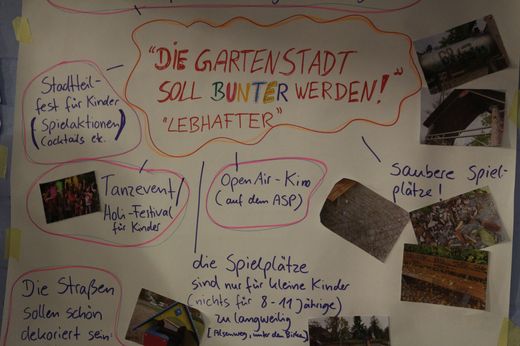 "DIE GARTENSTADT
SOLL BUNTER WERDEN!"
"LEBHAFTER"
Stadtteil-
fest für Kinder
(Spielaktionen
Cocktails etc.)
Tanzevent/
Holi-Festival
für Kinder
Open Air-Kino
(auf dem ASP)
saubere Spiel-
plätze!
Die Straßen
sollen schön
dekoriert sein!
die Spielplätze
sind nur für kleine Kinder
(nichts für 8-11 jährige)
zu langweilig
[Alsenweg, unter den Birken]